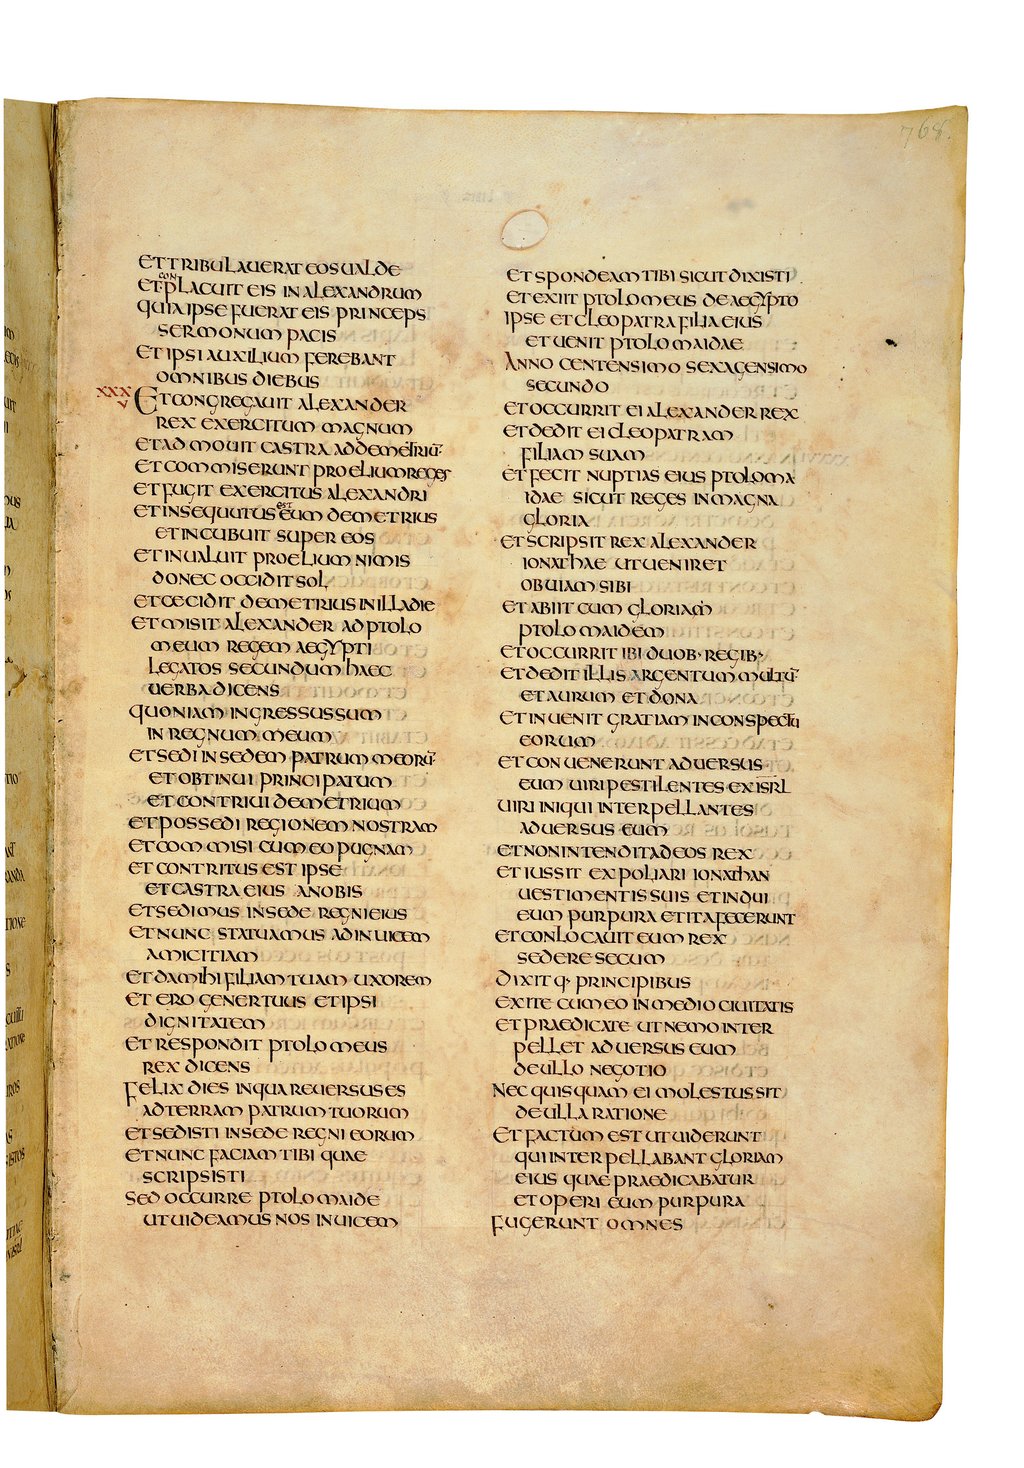 768.
ET TRIBULAVERAT EOS VALDE
ET CONPLACUIT EIS IN ALEXANDRUM
QUIA IPSE FUERAT EIS PRINCEPS
SERMONUM PACIS
ET IPSI AUXILIUM FEREBANT
OMNIBUS DIEBUS
XXXV ET CONGREGAUIT ALEXANDER
REX EXERCITUM MAGNUM
ET ADMOUIT CASTRA AD DEMETRIŪ·
ET COMMISERUNT PROELIUM REGES
ET FUGIT EXERCITUS ALEXANDRI
ET INSEQUUTUS EST EUM DEMETRIUS
ET INCUBUIT SUPER EOS
ET INUALUIT PROELIUM NIMIS
DONEC OCCIDIT SOL
ET CECIDIT DEMETRIUS IN ILLA DIE
ET MISIT ALEXANDER AD PTOLO
MEUM REGEM AEGYPTI
LEGATOS SECUNDUM HAEC
UERBA DICENS
QUONIAM INGRESSUS SUM
IN REGNUM MEUM
ET SEDI IN SEDEM PATRUM MEORŪ·
ET OBTINUI PRINCIPATUM
ET CONTRIUI DEMETRIUM
ET POSSEDI REGIONEM NOSTRAM
ET COMMISI CUM EO PUGNAM
ET CONTRITUS EST IPSE
ET CASTRA EIUS A NOBIS
ET SEDIMUS IN SEDE REGNI EIUS
ET NUNC STATUAMUS AD INUICEM
AMICITIAM
ET DA MIHI FILIAM TUAM UXOREM
ET ERO GENER TUUS ET IPSI
DIGNITATEM
ET RESPONDIT PTOLOMEUS
REX DICENS
FELIX DIES IN QUA REUERSUS ES
AD TERRAM PATRUM TUORUM
ET SEDISTI IN SEDE REGNI EORUM
ET NUNC FACIAM TIBI QUAE
SCRIPSISTI
SED OCCURRE PTOLOMAIDE
UT UIDEAMUS NOS INUICEM
ET SPONDEAM TIBI SICUT DIXISTI
ET EXIIT PTOLOMEUS DE AEGYPTO
IPSE ET CLEOPATRA FILIA EIUS
ET UENIT PTOLOMAIDAE
ANNO CENTENSIMO SEXAGENSIMO
SECUNDO
ET OCCURRIT EI ALEXANDER REX
ET DEDIT EI CLEOPATRAM
FILIAM SUAM
ET FECIT NUPTIAS EIUS PTOLOMA
IDAE SICUT REGES IN MAGNA
GLORIA
ET SCRIPSIT REX ALEXANDER
IONATHAE UT UENIRET
OBUIAM SIBI
ET ABIIT CUM GLORIAM
PTOLOMAIDEM
ET OCCURRIT IBI DUOB· REGIB·
ET DEDIT ILLIS ARGENTUM MULTŪ·
ET AURUM ET DONA
ET INUENIT GRATIAM IN CONSPECTU
EORUM
ET CONUENERUNT ADUERSUS
EUM UIRI PESTILENTES EX ISRL
UIRI INIQUI INTERPELLANTES
ADUERSUS EUM
ET NON INTENDIT AD EOS REX
ET IUSSIT EXPOLIARI IONATHAN
UESTIMENTIS SUIS ET INDUI
EUM PURPURA ET ITA FECERUNT
ET CONLOCAUIT EUM REX
SEDERE SECUM
DIXITQ· PRINCIPIBUS
EXITE CUM EO IN MEDIO CIUITATIS
ET PRAEDICATE UT NEMO INTER
PELLET ADUERSUS EUM
DE ULLO NEGOTIO
NEC QUISQUAM EI MOLESTUS SIT
DE ULLA RATIONE
ET FACTUM EST UT UIDERUNT
QUI INTERPELLABANT GLORIAM
EIUS QUAE PRAEDICABATUR
ET OPERI EUM PURPURA
FUGERUNT OMNES